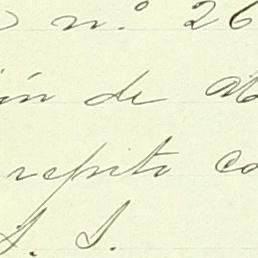 n.º 26
ón de
repito co
S. S.